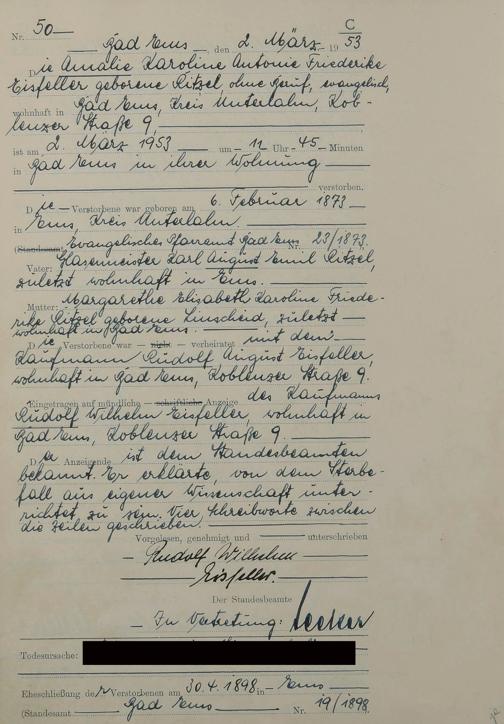 C
Nr. 50
Bad Ems, den 2. März 1953
Die Amalie Karoline Antonie Friederike
Eisfeller geborene Ritzel, ohne Beruf, evangelisch,
wohnhaft in Bad Ems, Kreis Unterlahn, Kob-
lenzer Straße 9,
ist am 2. März 1953 um 12 Uhr 45 Minuten
in Bad Ems in ihrer Wohnung
verstorben.
Die Verstorbene war geboren am 6. Februar 1873
in Ems, Kreis Unterlahn.
(Standesamt Evangelisches Pfarramt Bad Ems Nr. 23/1873.
Vater: Glasermeister Karl August Emil Ritzel,
zuletzt wohnhaft in Ems.
Mutter: Margarethe Elisabeth Karoline Friede-
rike Ritzel geborene Linscheid, zuletzt
wohnhaft in Bad Ems.
Die Verstorbene war — nicht — verheiratet mit dem
Kaufmann Rudolf August Eisfeller,
wohnhaft in Bad Ems, Koblenzer Straße 9.
Eingetragen auf mündliche — schriftliche Anzeige des Kaufmanns
Rudolf Wilhelm Eisfeller, wohnhaft in
Bad Ems, Koblenzer Straße 9.
Der Anzeigende ist dem Standesbeamten
bekannt. Er erklärte, von dem Sterbe-
fall aus eigener Wissenschaft unter-
richtet zu sein. Vier Schreibworte zwischen
die Zeilen geschrieben.
Vorgelesen, genehmigt und unterschrieben
Rudolf Wilhelm
Eisfeller.
Der Standesbeamte
In Vertretung:
Todesursache:
Eheschließung der Verstorbenen am 30.4.1898 in Ems
(Standesamt Bad Ems Nr. 19/1898